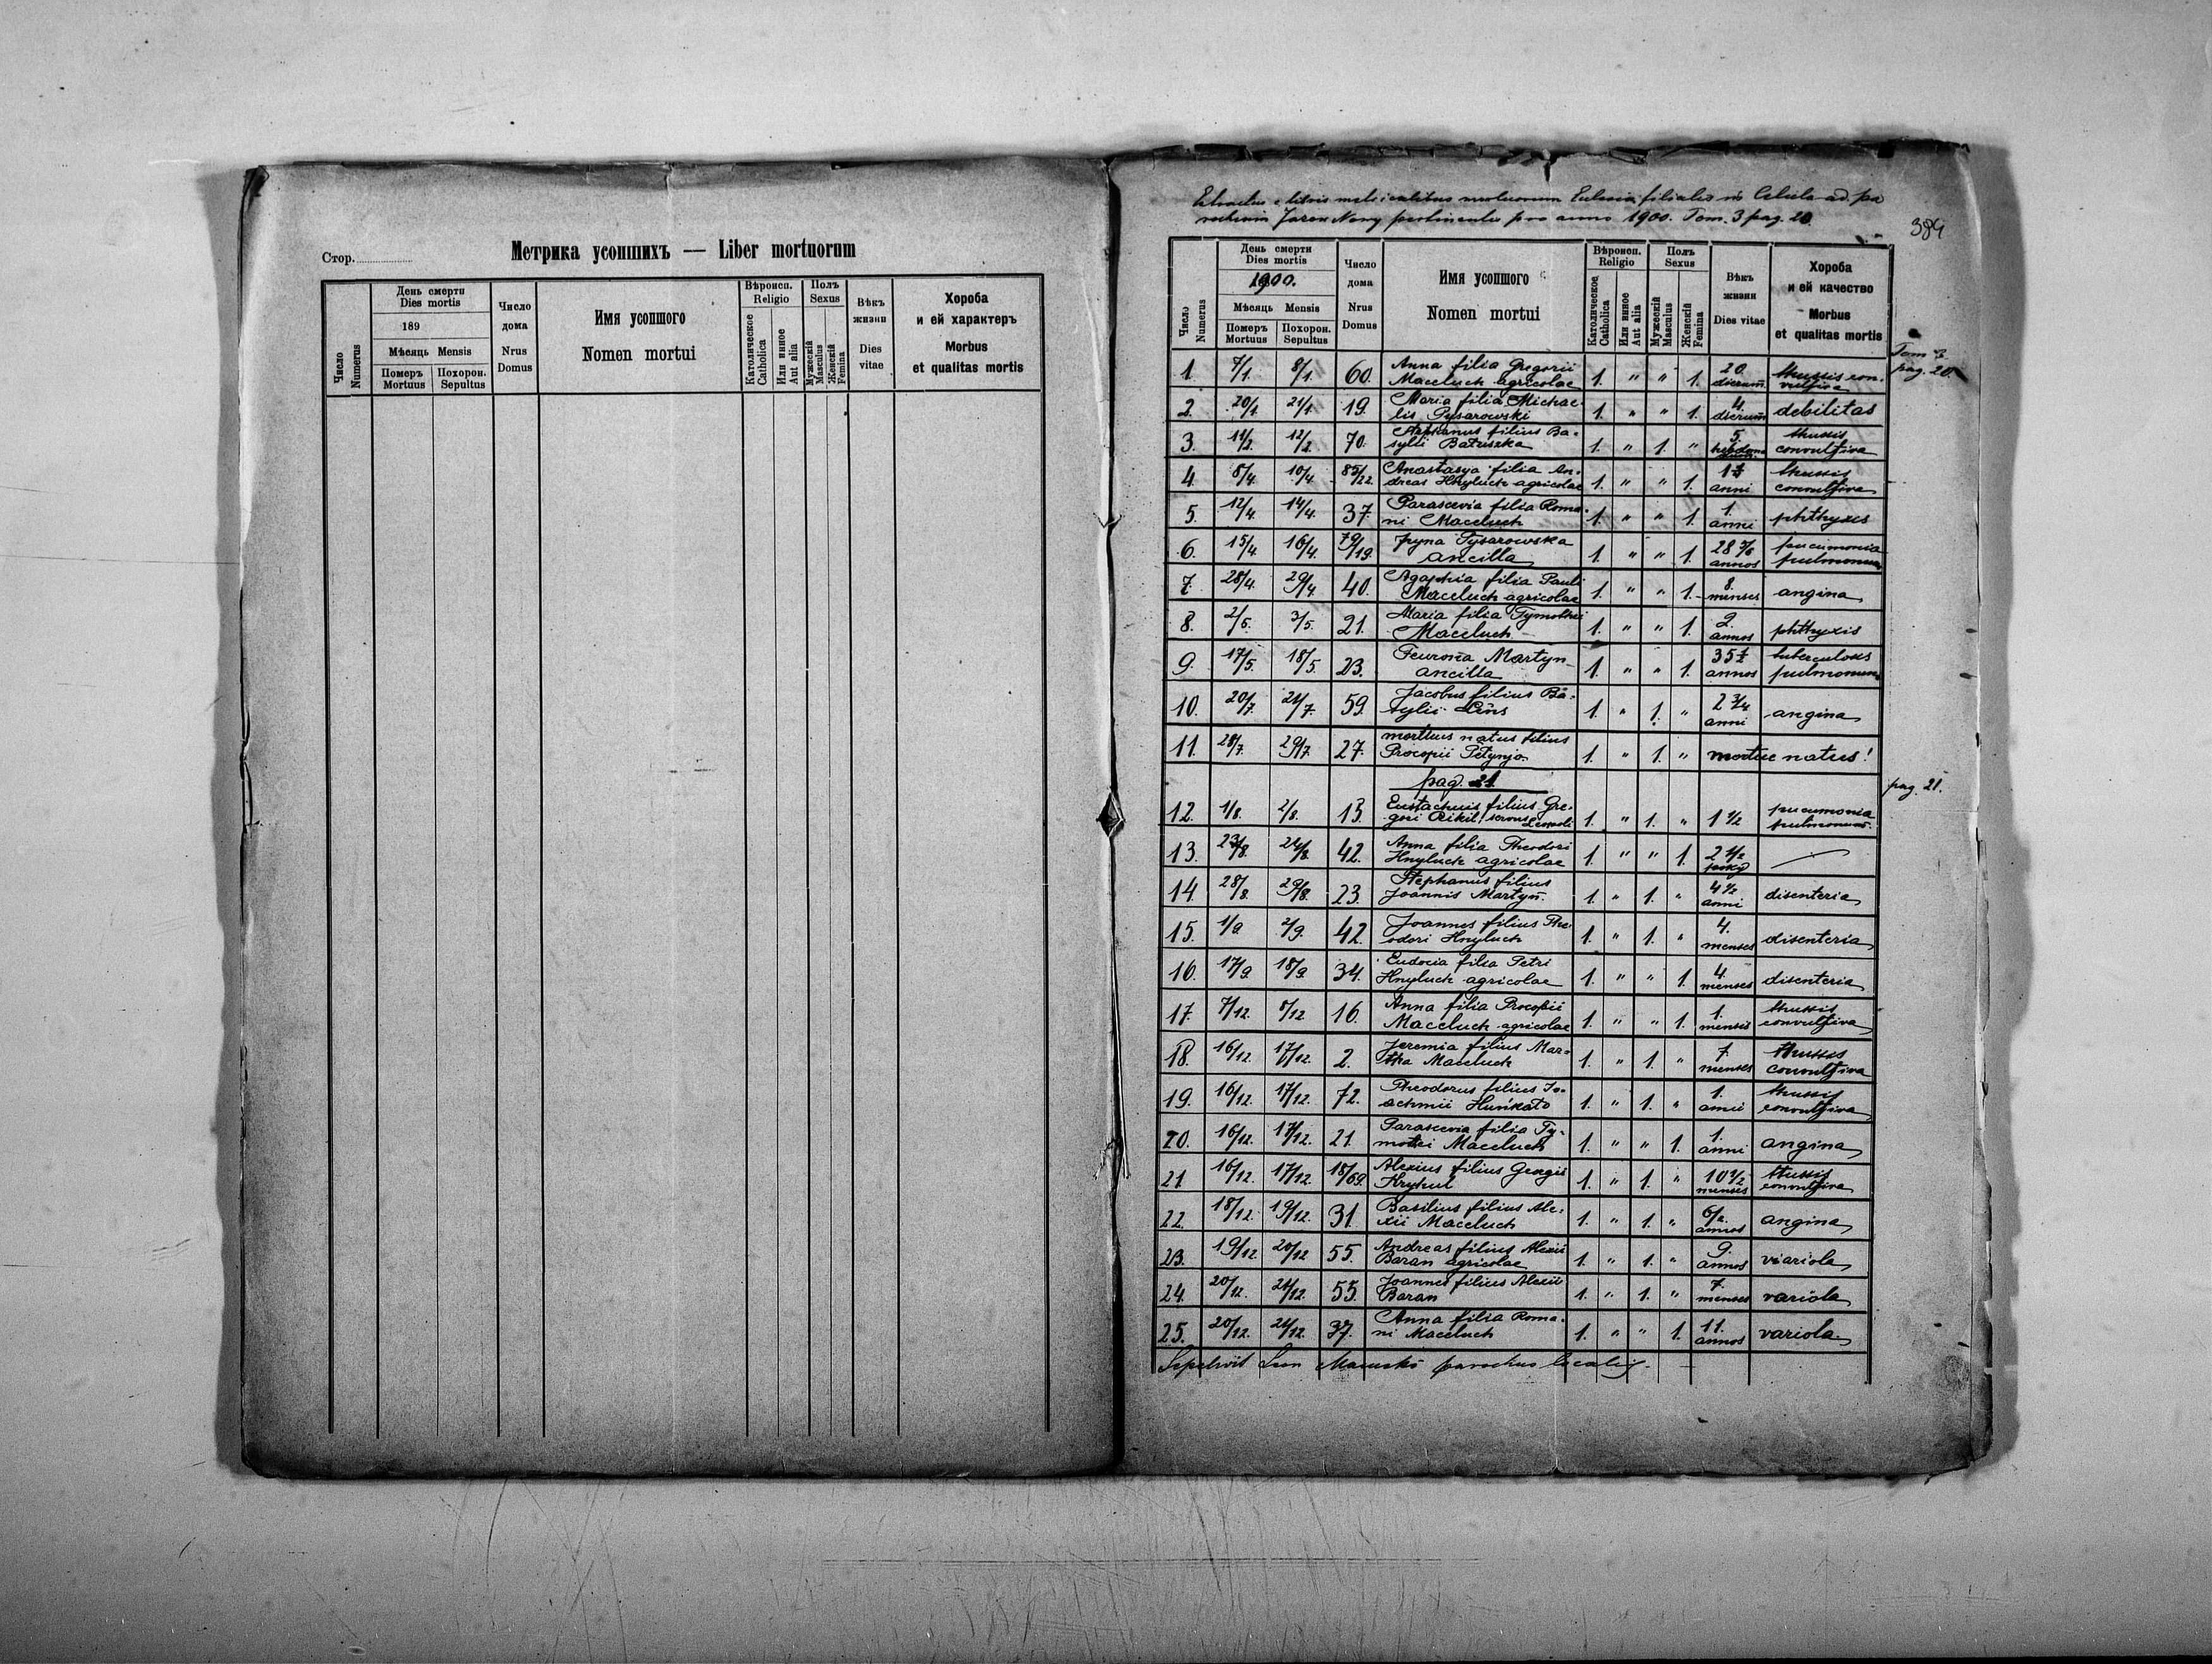 Стор.
Метрика усопшихъ — Liber mortuorum
Число
Numerus
День смерти
Dies mortis
189
Мѣсяць Mensis
Померъ
Mortuus
Похорон.
Sepultus
Число
дома
Nrus
Domus
Имя усопшого
Nomen mortui
Вѣроисп.
Religio
Католическое
Catholica
Или инное
Aut alia
Полъ
Sexus
Мужескій
Masculus
Женскій
Femina
Вѣкъ
жизни
Dies
vitae
Хороба
и ей характеръ
Morbus
et qualitas mortis
libris mortuorum filialis ad pa
Nowy pro anno 1900. Tom. 3 pag. 20.
389
Число
Numerus
День смерти
Dies mortis
1900.
Мѣсяць Mensis
Померъ
Mortuus
Похорон.
Sepultus
Число
дома
Nrus
Domus
Имя усопшого
Nomen mortui
Вѣроисп.
Religio
Католическое
Catholica
Или инное
Aut alia
Полъ
Sexus
Мужескій
Masculus
Женскій
Femina
Вѣкъ
жизни
Dies vitae
Хороба
и ей качество
Morbus
et qualitas mortis
Tom 3
pag. 20.
1. 7/1. 8/1. 60. Anna filia Gregorii
Maceluch agricolae 1. " " 1. 20 dierum thussis con-
vulsiva
2. 20/1. 21/1. 19. Maria filia Michae-
lis Pysarowski 1. " " 1. 4 dierum debilitas
3. 11/2. 12/2. 70. filius Ba-
sylii Batruszka 1. " 1. " 5. thussis
convulsiva
4. 8/4. 10/4. 85/22. Anastasya filia An-
dreas Hnyluch agricolae 1. " " 1. anni thussis
convulsiva
5. 12/4. 14/4. 37. Parascevia filia Roma-
ni Maceluch 1. " " 1. 1. anni phthysis
6. 15/4. 16/4. 79/19. Iryna Pysarowska
ancilla 1. " " 1. 28 annos pneumonia
pulmonum
7. 28/4. 29/4. 40. Agaphia filia Pauli
Maceluch agricolae 1. " " 1. 8. menses angina
8. 2/5. 3/5. 21. Maria filia Tymothei
Maceluch 1. " " 1. 2. annos phthysis
9. 17/5. 18/5. 23. Feuronia Martyn
ancilla 1. " " 1. 35 annos tuberculosis
pulmonum
10. 20/7. 21/7. 59. Jacobus filius Ba-
sylii 1. " 1. " 2 3/4 anni angina
11. 28/7. 29/7. 27. mortuus natus filius
Procopii Petynja 1. " 1. " mortue natus!
pag. 21.
pag. 21.
12. 1/8. 2/8. 13. Eustachius filius Gre-
gori 1. " 1. " 1 1/2 pneumonia
pulmonum
13. 23/8. 24/8. 42. Anna filia Theodori
Hnyluch agricolae 1. " " 1. 2 1/2
14. 28/8. 29/8. 23. Stephanus filius
Joannis Martyn. 1. " 1. " 4 1/2 anni disenteria
15. 1/9. 2/9. 42. Joannes filius The-
odori Hnyluch 1. " 1. " 4. menses disenteria
16. 17/9. 18/9. 34. Eudocia filia Petri
Hnyluch agricolae 1. " " 1. 4. menses disenteria
17. 7/12. 8/12 16. Anna filia Procopii
Maceluch agricolae 1. " " 1. 1. mensis thussis
convulsiva
18. 16/12. 17/12. 2. Jeremia filius Mar-
tha Maceluch 1. " 1. " 7. menses thussis
convulsiva
19. 16/12. 17/12. 72. Theodorus filius Jo-
achmii Huńkało 1. " 1. " 1. anni thussis
convulsiva
20. 16/12. 17/12. 21. Parascevia filia Ty-
motei Maceluch 1. " " 1. 1. anni angina
21 16/12. 17/12. 18/69. Alexius filius Georgii
Hrykul 1. " 1. " 10 1/2 menses thussis
convulsiva
22. 18/12. 19/12. 31. Basilius filius Ale-
xii Maceluch 1. " 1. " annos angina
23. 19/12. 20/12 55. Andreas filius Alexii
Baran agricolae 1. " 1. " 9. annos viariola
24. 20/12. 21/12. 55. Joannes filius Alexii
Baran 1. " 1. " 7. menses variola
25. 20/12. 21/12. 37. Anna filia Roma-
ni Maceluch 1. " " 1. 11. annos variola
Sepelivit Leon parochus localis.